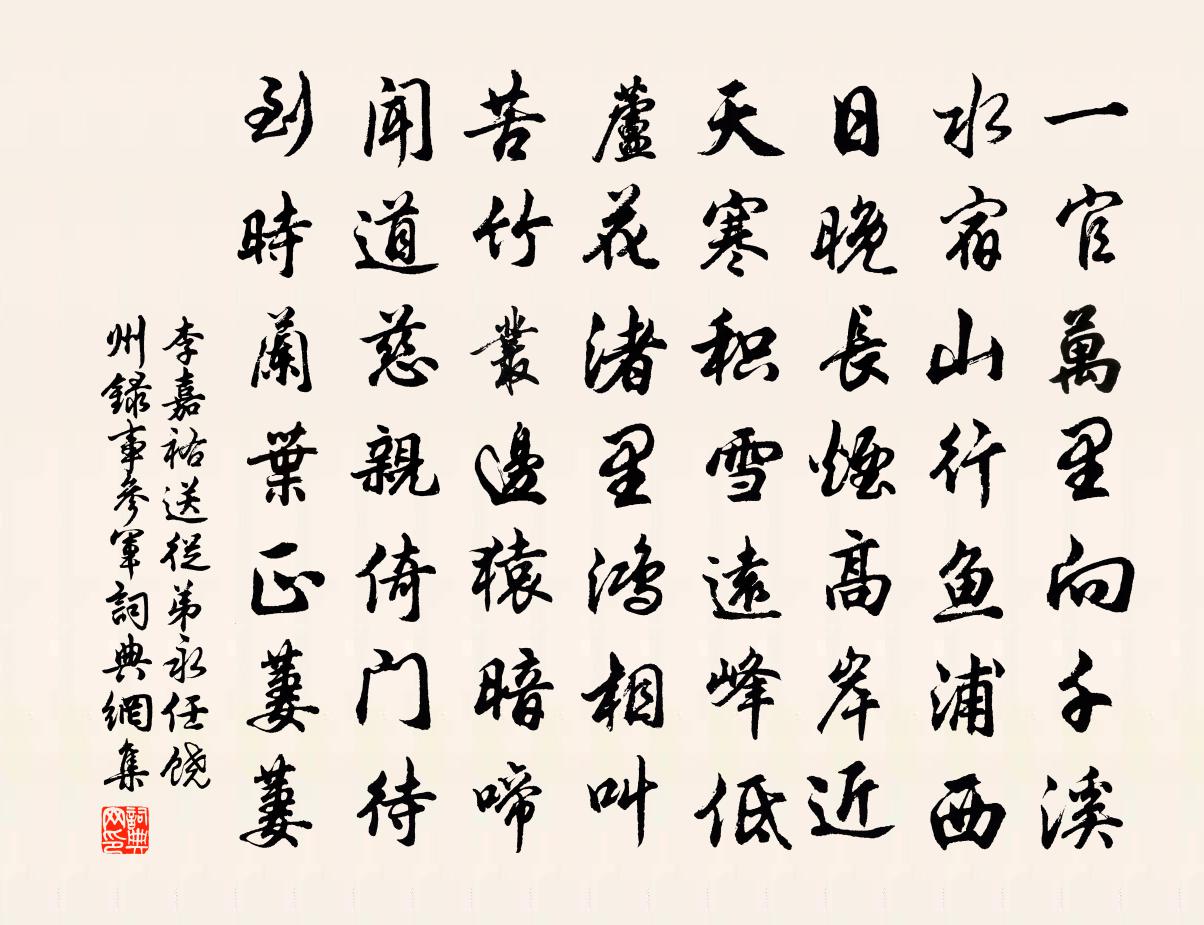 一官萬里向千溪
水宿山行魚浦西
日晚長煙高岸近
天寒积雪遠峰低
蘆花渚里鴻相叫
苦竹叢邊猿暗啼
聞道慈親倚门待
到時蘭葉正萋萋
李嘉祐送從弟永任饶
州録事參軍詞典網集
詞典
网印